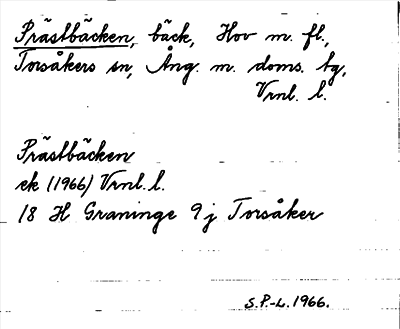 Prästbäcken, bäck, Hov m. fl.,
Torsåkers sn, Ång. m. doms. tg,
Vrnl. l.
Prästbäcken
ek (1966) Vrnl. l.
18 H Graninge 9j Torsåker
S.P.-L. 1966.